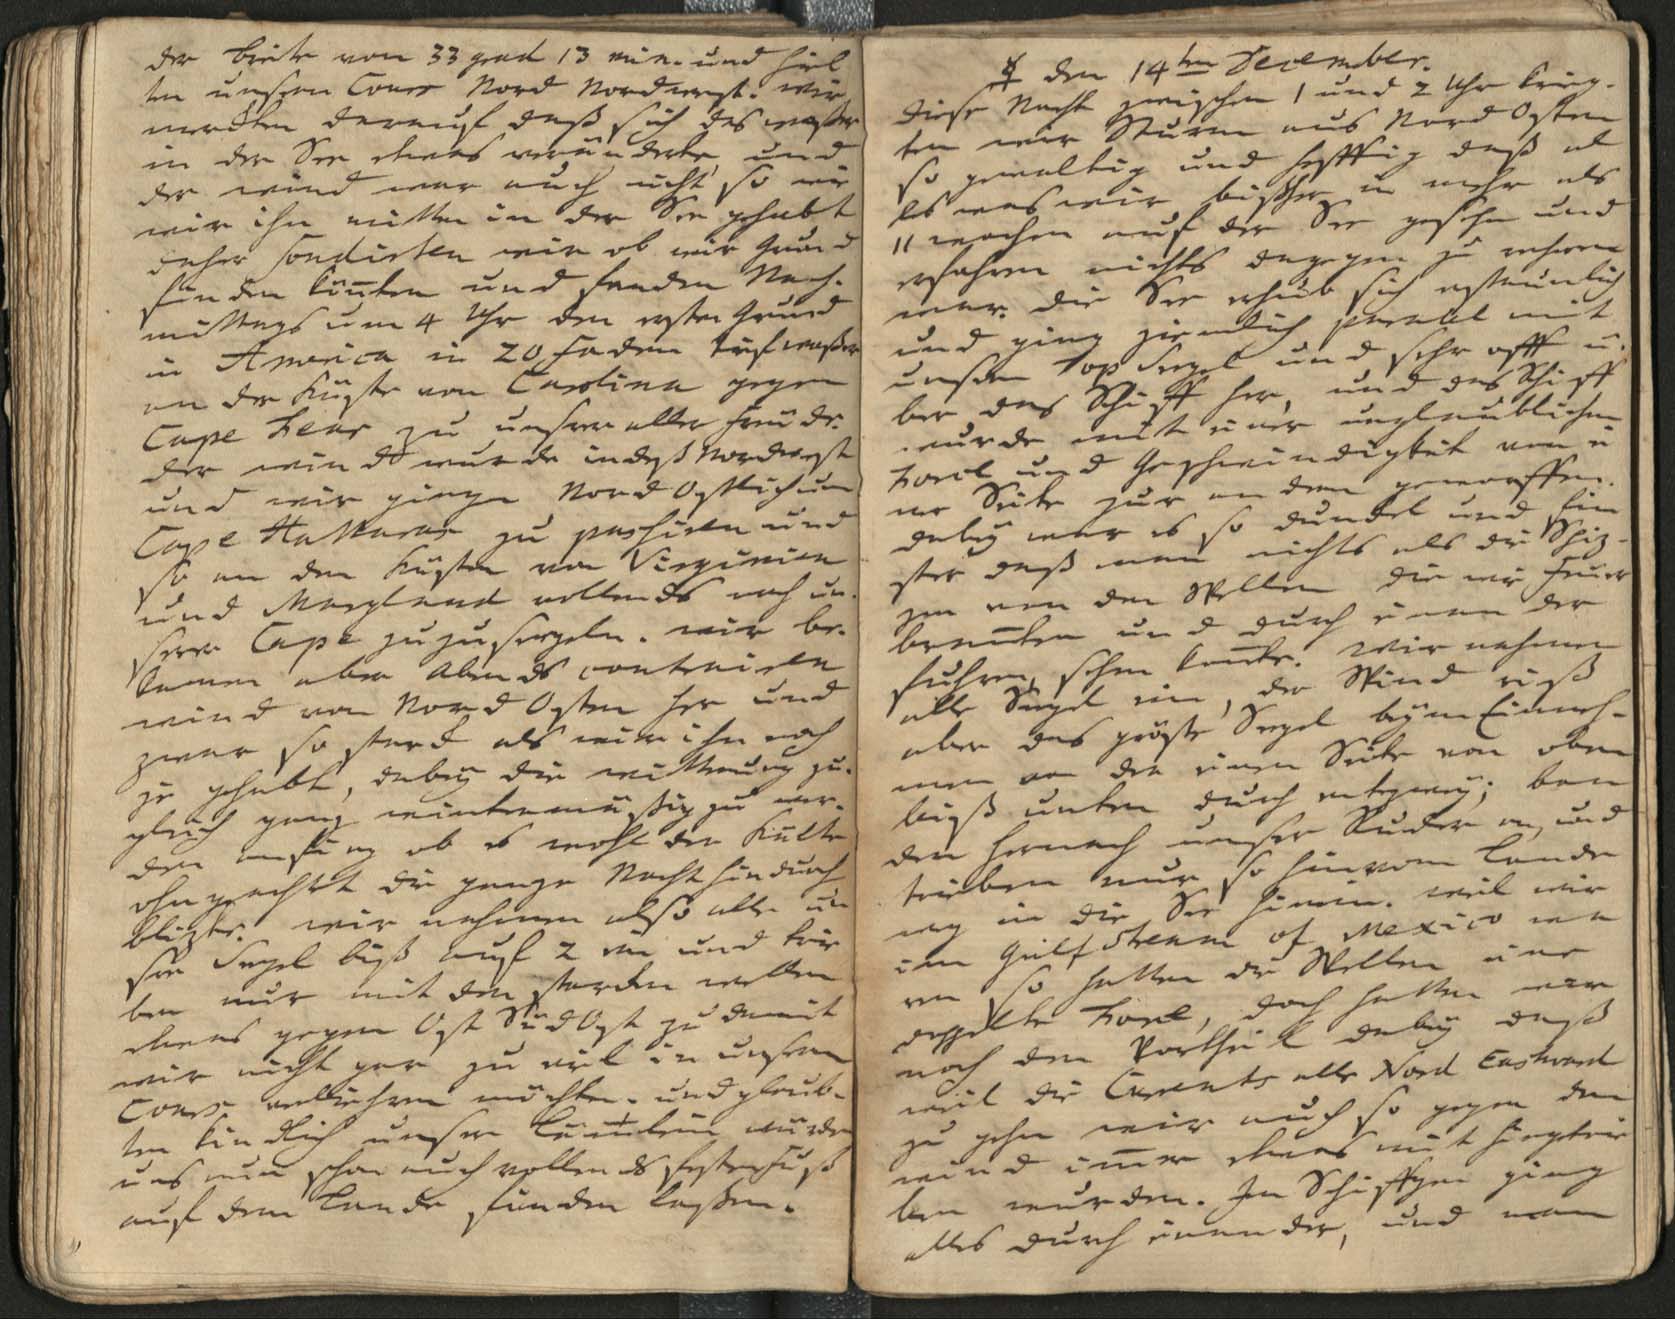 der breite von 33 grad 13 min. und hiel
ten unsern Cours Nord Nordwest. wir
merckten darauf daß sich das waßer
in der See etwas veränderte, und
der wind war auch nicht so wie
wir ihn mitten in der See gehabt
daher sondirten wir ob wir Grund
finden könten und fanden Nach-
mittags um 4 Uhr den ersten Grund
in America in 20 Faden tief waßer
an der Küste von Carolina gegen
Cape Fear zu unser aller Freude.
der wind wurde indeß Nordwest
und wir gingen Nord Ostlich um
Cape Hatteras zu paßiren und
so an den Küsten von Virginien
und Maryland vollends nach un-
serm Cape zuzusegeln. wir be-
kamen aber Abends contrairen
wind von Nord Osten her und
zwar so starck als wir ihn noch
je gehabt, dabey die witterung zu-
gleich gantz wintermäßig zu wer-
den anfing ob es wohl der Kälte
ohngeachtet die gantze Nacht hindurch
blizte. wir nahmen also alle un
sre Segel biß auf 2 ein und trie
ben nur mit den starcken wellen
etwas gegen Ost Süd Ost zu damit
wir nicht gar zu viel in unserm
Cours verliehren möchten. und glaub-
ten kindlich unser Lämlein würde
uns nun schon auch vollends festen Fuß
auf dem Lande finden laßen.
☿ den 14ten December.
diese Nacht zwischen 1 und 2 Uhr krieg-
ten wir Sturm aus Nord Osten
so gewaltig und hefftig daß al
les was wir bißher in mehr als
11 wochen auf der See gesehn und
erfahren nichts dagegen zu rechnen
war. die See erhub sich erstaunlich
und ging ziemlich parallel mit
unsern Top Segel und sehr offt ü-
ber das Schiff her, und das Schiff
wurde mit einer unglaublichen
Force und Geschwindigkeit von ei
ner Seite zur andern geworffen.
dabey war es so dunckel und fin
ster daß man nichts als die Spiz-
zen von den Wellen die wie Feuer
brenten und durch einander
fuhren, sehen konte. wir nahmen
alle Segel ein, der Wind riß
aber das gröste Segel beym Einneh-
men von der einen Seite von oben
biß unten durch entzwey; ban
den hernach unser Ruder an, und
trieben nur so hin vom Lande
weg in die See hinein. weil wir
im Gulf Stream of Mexico wa
ren so hatten die Wellen eine
doppelte Force, doch hatten wir
noch den Vortheil dabey daß
weil die Currents alle Nord Eastward
zu gehn wir auch so gegen den
wind immer etwas mit hingetrie
ben wurden. Im Schiffgen ging
alles durch einander, und man